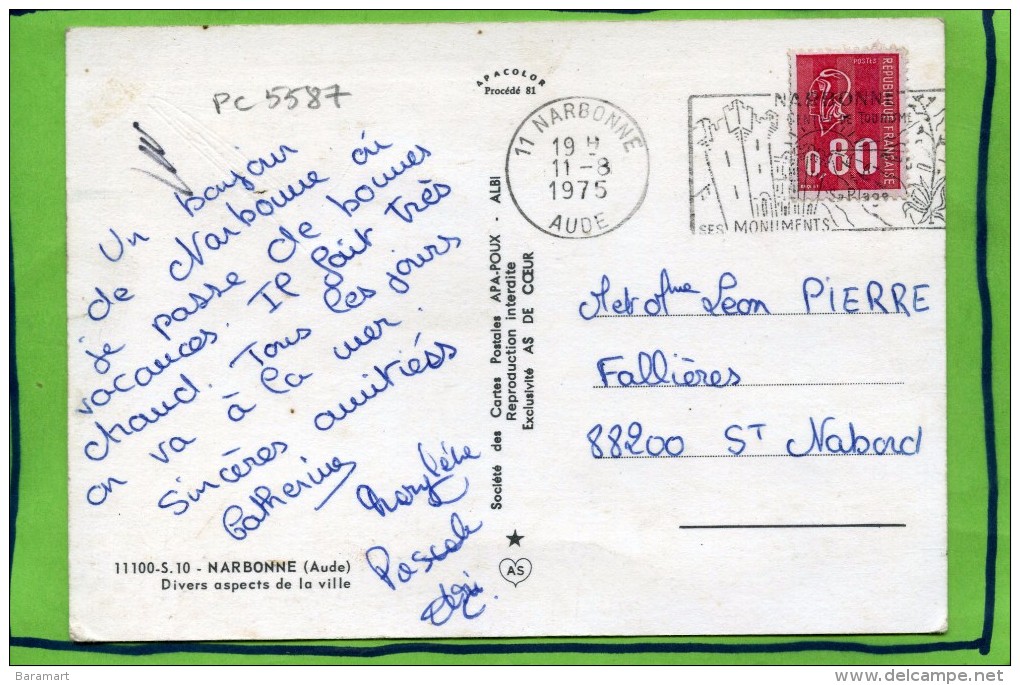 PC 5587
APACOLOR
Procédé 81
Un bonjour
de Narbonne où
je passe de bonnes
vacances. Il fait très
chaud. Tous les jours
on va à la mer.
Sincères amitiés
Catherine
Marylène
Pascale
11100-S.10 - NARBONNE (Aude)
Divers aspects de la ville
Société des Cartes Postales APA-POUX - ALBI
Reproduction interdite
Exclusivité AS DE CŒUR
AS
11 NARBONNE
19 H
11-8
1975
AUDE
NARBONNE
CENTRE DE TOURISME
SES MONUMENTS
POSTES
RÉPUBLIQUE FRANÇAISE
0,80
M et Mme Léon PIERRE
Fallières
88200 ST Nabord
Baramart
www.delcampe.net